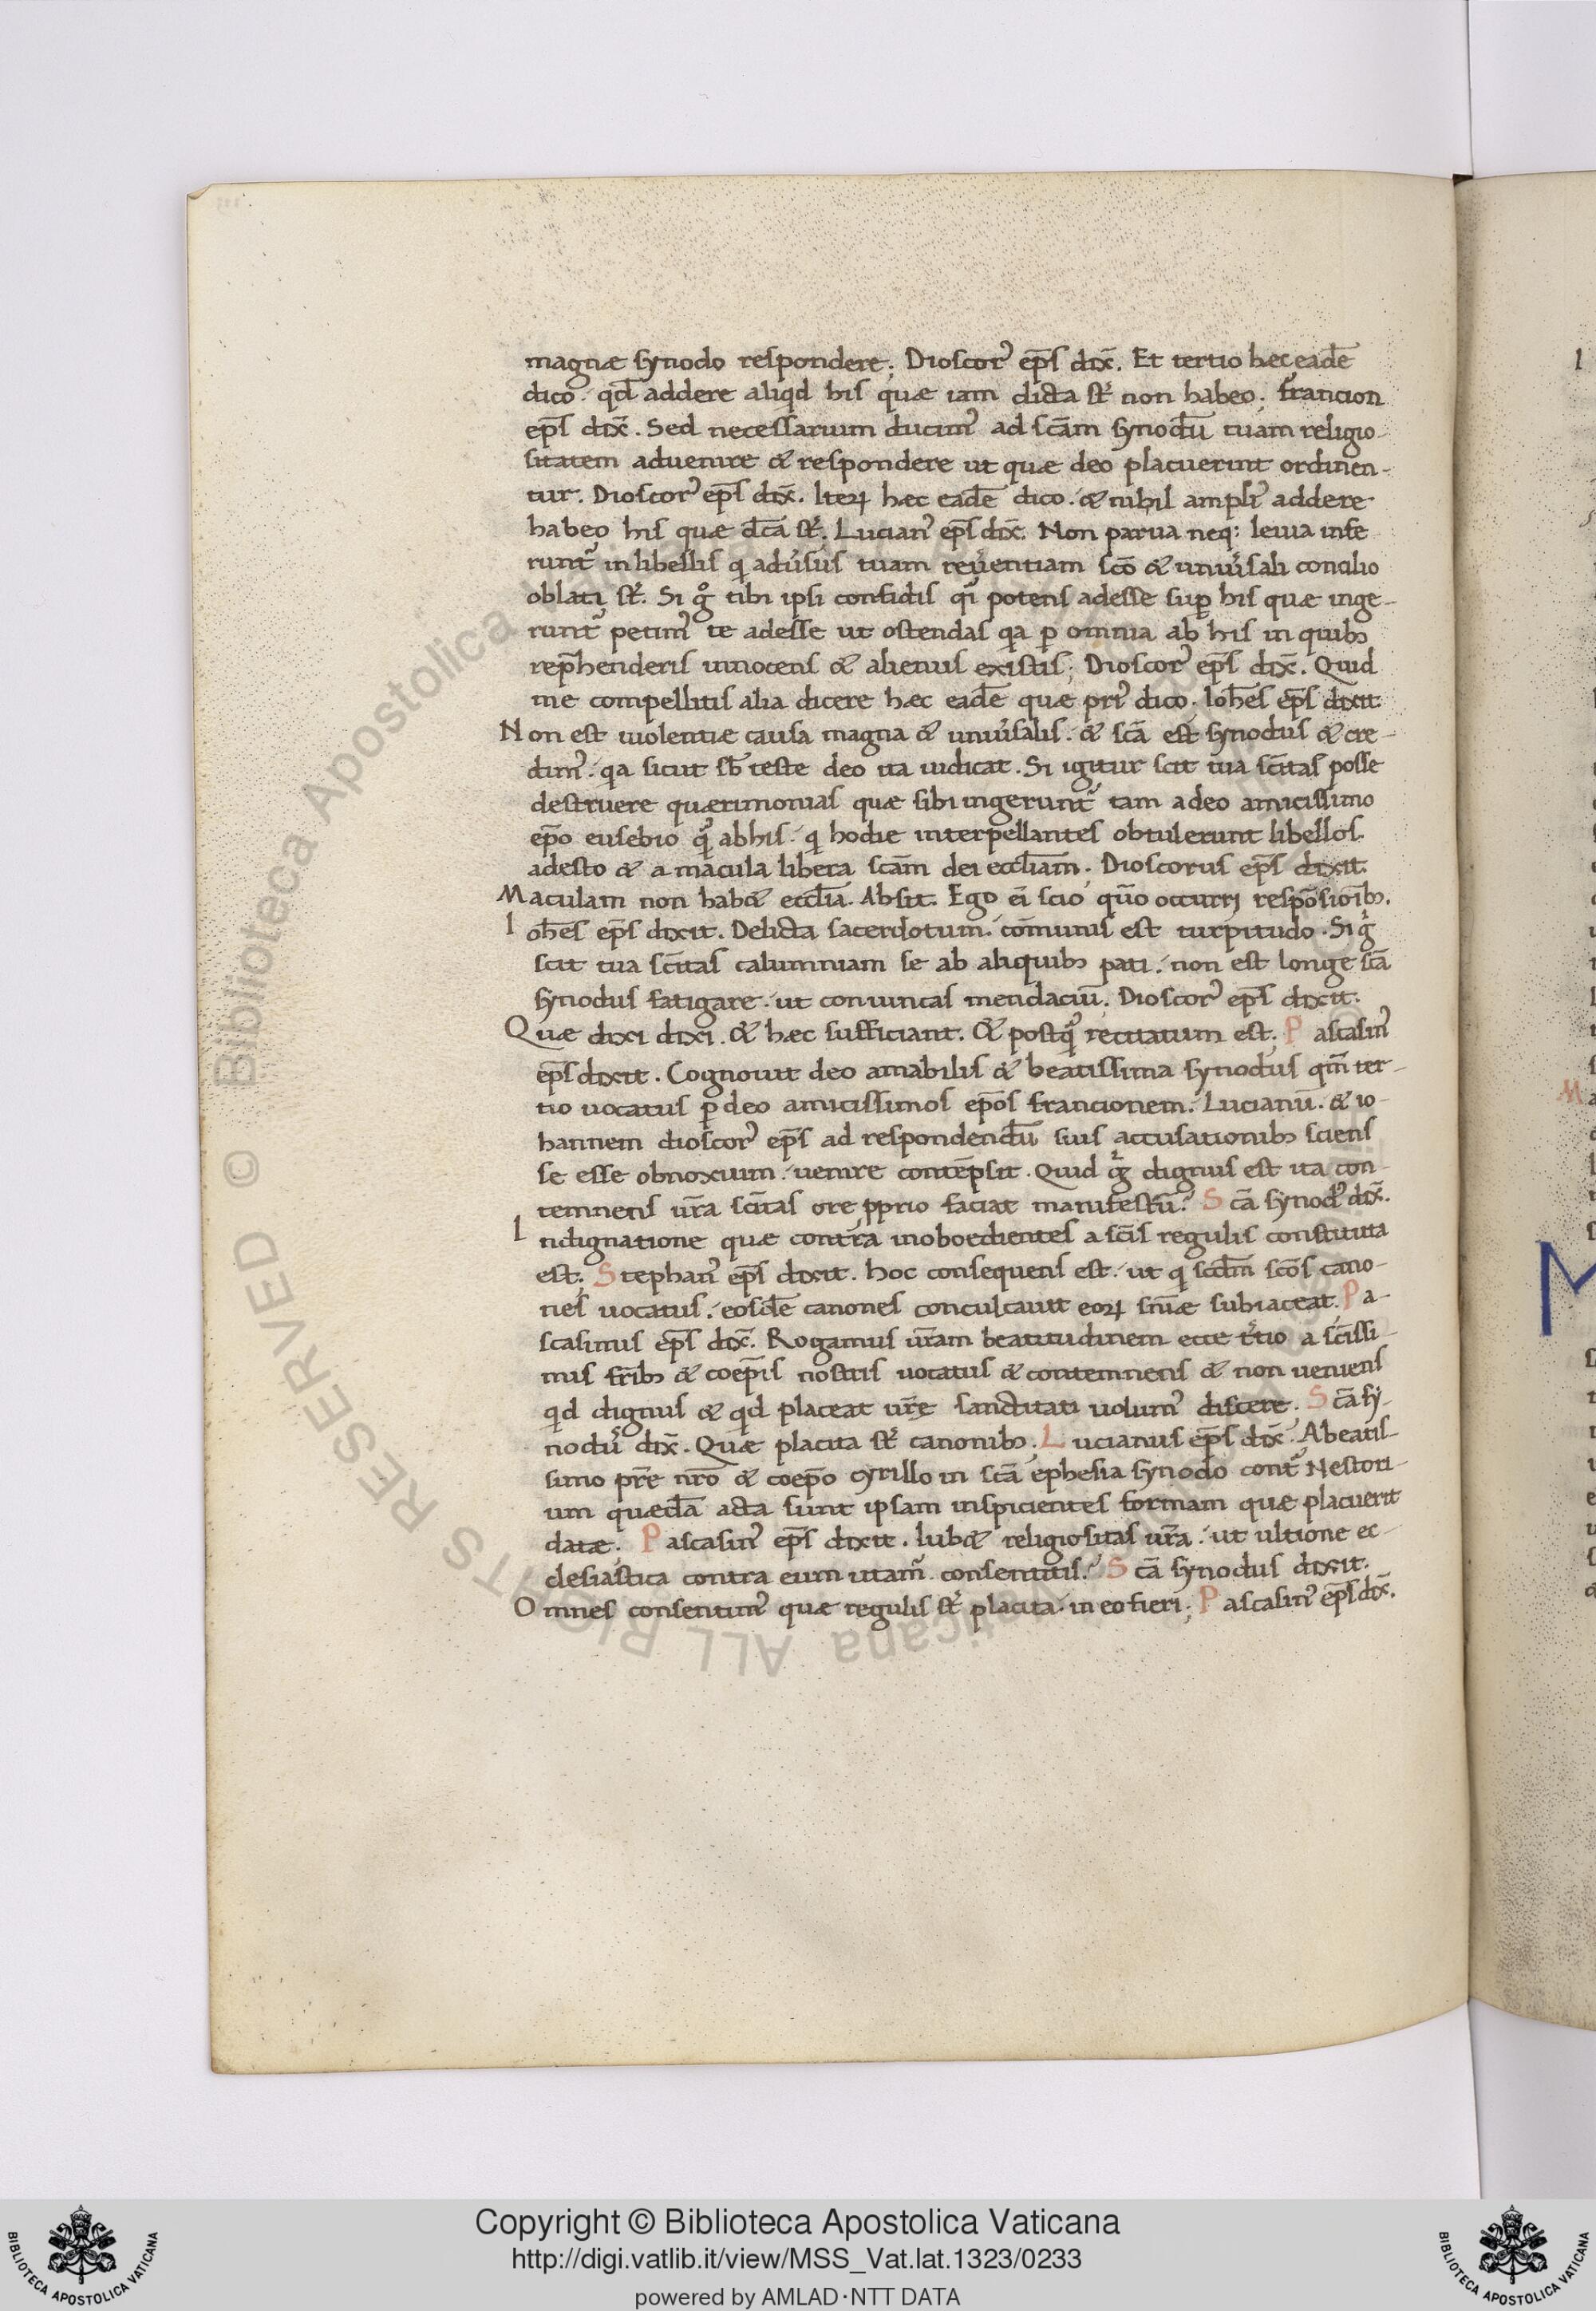 magnæ synodo respondere; Dioscorꝰ ep̄s dix̄. Et tertio hec eadē
dico. qd̄ addere aliqd his quæ iam dicta st̄ non habeo; francion
ep̄s dix̄. Sed necessarium ducimꝰ ad scām synodū tuam religio-
sitatem aduenire & respondere ut quæ deo placuerint ordinen-
tur. Dioscorꝰ ep̄s dix̄. Iteꝝ hæc eadē dico. & nihil ampliꝰ addere
habeo his quæ dc̄a st̄. Lucianꝰ ep̄s dix̄. Non parua neq; leuia infe
runt᷑ in libellis q adu̓sus tuam reu̓entiam sco̅ & uniu̓sali concilio
oblati st̄. Si gͦ tibi ipsi confidis qi̓ potens adesse suꝑ his quæ inge-
runt᷑ petimꝰ te adesse ut ostendas qa ꝑ omnia ab his in quibꝫ
rep̄henderis innocens & alienus existis; Dioscorꝰ ep̄s dix̄. Quid
me compellitis alia dicere hæc eadē quæ priꝰ dico. Ioh̄es ep̄s dixit.
Non est uiolentiæ causa magna & uniu̓salis. & scā est synodus & cre-
dimꝰ. qa sicut sb̄ teste deo ita iudicat. Si igitur scit tua sc̄itas posse
destruere quærimonias quæ sibi ingerunt᷑ tam a deo amicissimo
ep̄o eusebio qᷓ ab his. q hodie interpellantes obtulerunt libellos.
adesto & a macula libera scām dei eccl̄iam. Dioscorus ep̄s dixit.
Maculam non hab& eccl̄ia. Absit. Ego ei̅ scio quo̅ occurri respo̅sioib̅ꝫ.
Ioh̄es ep̄s dixit. Delicta sacerdotum. co̅munis est turpitudo. Si gͥ
scit tua sc̄itas calumniam se ab aliquibꝫ pati. non est longe scā
synodus fatigare. ut conuincas mendaciū. Dioscorꝰ ep̄s dixit.
Quæ dixi dixi. & hæc sufficiant. & postqᷓ recitatum est. Pascasinꝰ
ep̄s dixit. Cognouit deo amabilis & beatissima synodus qm̄ ter-
tio uocatus ꝑ deo amicissimos ep̄os francionem. Lucianū. & io-
hannem dioscorꝰ ep̄s ad respondendū suis accusationibꝫ sciens
se esse obnoxium. uenire contēpsit. Quid gͥ dignus est ita con-
temnens ur̄a sc̄itas ore ꝓprio faciat manifestū? Scā synodꝰ dix̄.
Indignatione quæ contra inoboedientes a scis̄ regulis constituta
est. Stephanꝰ ep̄s dixit. hoc consequens est. ut q scd̄m sco̅s cano-
nes uocatus. eosdē canones conculcauit eoꝝ sn̄iæ subiaceat. Pa-
scasinus ep̄s dix̄. Rogamus ur̄am beatitudinem ecce tͥtio a sc̄issi-
mis fr̄ibꝫ & coep̄is nostris uocatus & contemnens & non ueniens
qd dignus & qd placeat ur̄ę sanctitati uolumꝰ discere. Scā sy-
nodus̓ dix̄. Quæ placita st̄ canonibꝫ. Lucianus ep̄s dix̄. A beatis-
simo pr̄e nr̄o & coep̄o cyrillo in scā ephesia synodo cont᷑ Nestori-
um quædā acta sunt ipsam inspicientes formam quæ placuerit
datæ. Pascasinꝰ ep̄s dixit. Iub& religiositas ur̄a. ut ultione ec-
clesiastica contra eum utam᷑. consentitis? Scā synodus dixit.
Omnes consentimꝰ quæ regulis st̄ placita. in eo fieri; Pascasinꝰ ep̄s dix̄.
M
Copyright © Biblioteca Apostolica Vaticana
http://digi.vatlib.it/view/MSS_Vat.lat.1323/0233
powered by AMLAD·NTT DATA
BIBLIOTECA APOSTOLICA VATICANA
BIBLIOTECA APOSTOLICA VATICANA